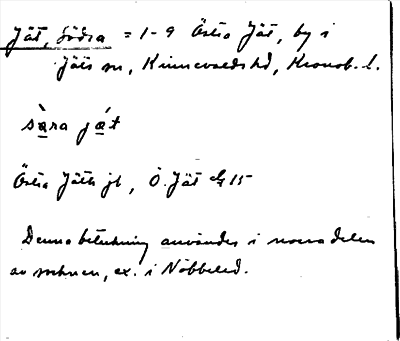 Jät, Södra = 1-9 Östra Jät, by i
Jäts sn, Kinnevalds hd, Kronob. l.
sàra ját
Östra Jäts jb, Ö. Jät 15
Denna beteckning användes i norra delen
av socknen, ex. i Nöbbeled.